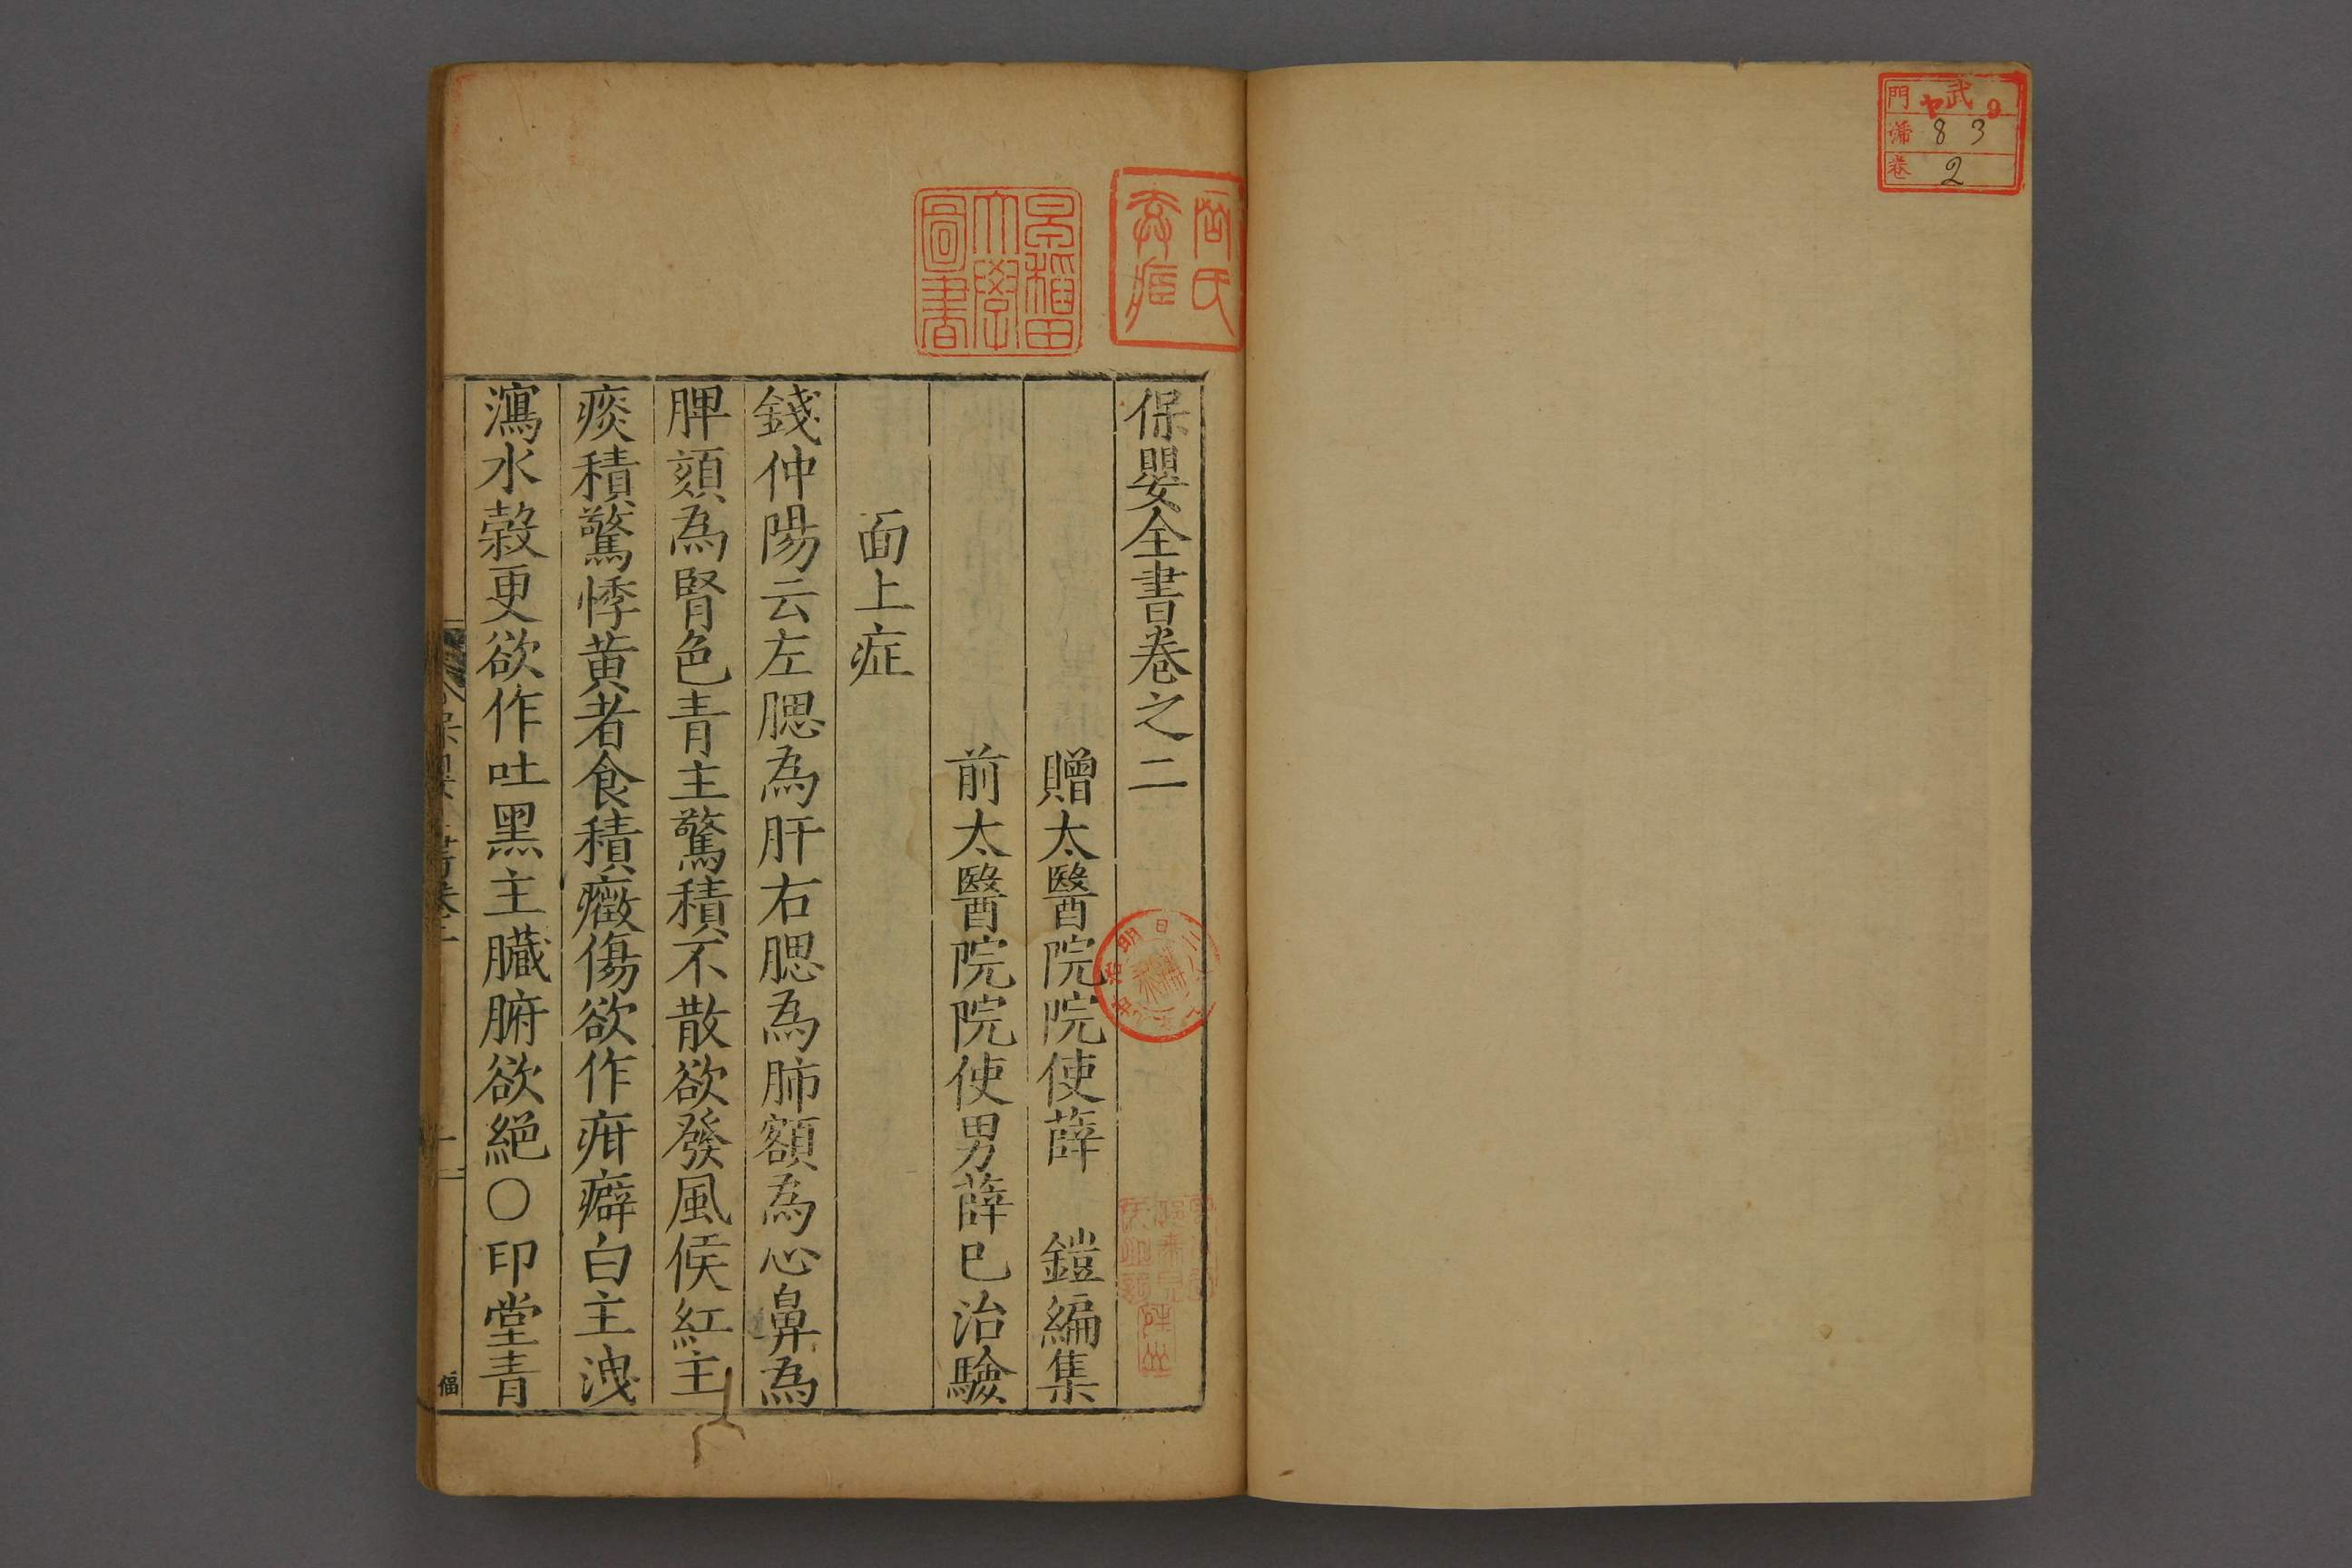 門 武
83
卷 2
早稲田大學圖書
保嬰全書卷之二
贈太醫院院使薛 鎧編集
前太醫院院使男薛已治驗
面上症
錢仲陽云左腮為肝右腮為肺額為心鼻為
脾頦為腎色青主驚積不散欲發風候紅主
痰積驚悸黄者食積癥傷欲作疳癖白主洩
瀉水榖更欲作吐黑主臟腑欲絕○印堂青